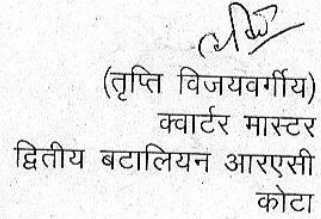 (तृप्ति विजयवर्गीय)
क्वार्टर मास्टर
द्वितीय बटालियन आरएसी
कोटा